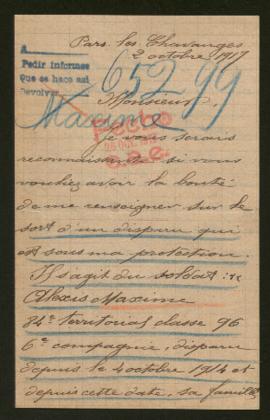 Pars. les Chavanges
2 octobre 1917
A
Pedir informes
Que se hace así
Devolver
65299
Monsieur,
Maxime
Je vous serais
reconnaissante si vous
vouliez avoir la bonté
de me renseigner sur le
sort d'un disparu qui
est sous ma protection
Il s'agit du soldat :
Alexis Maxime
84e territorial classe 96
6e compagnie, disparu
depuis le 4 octobre 1914 et
depuis cette date, sa famille